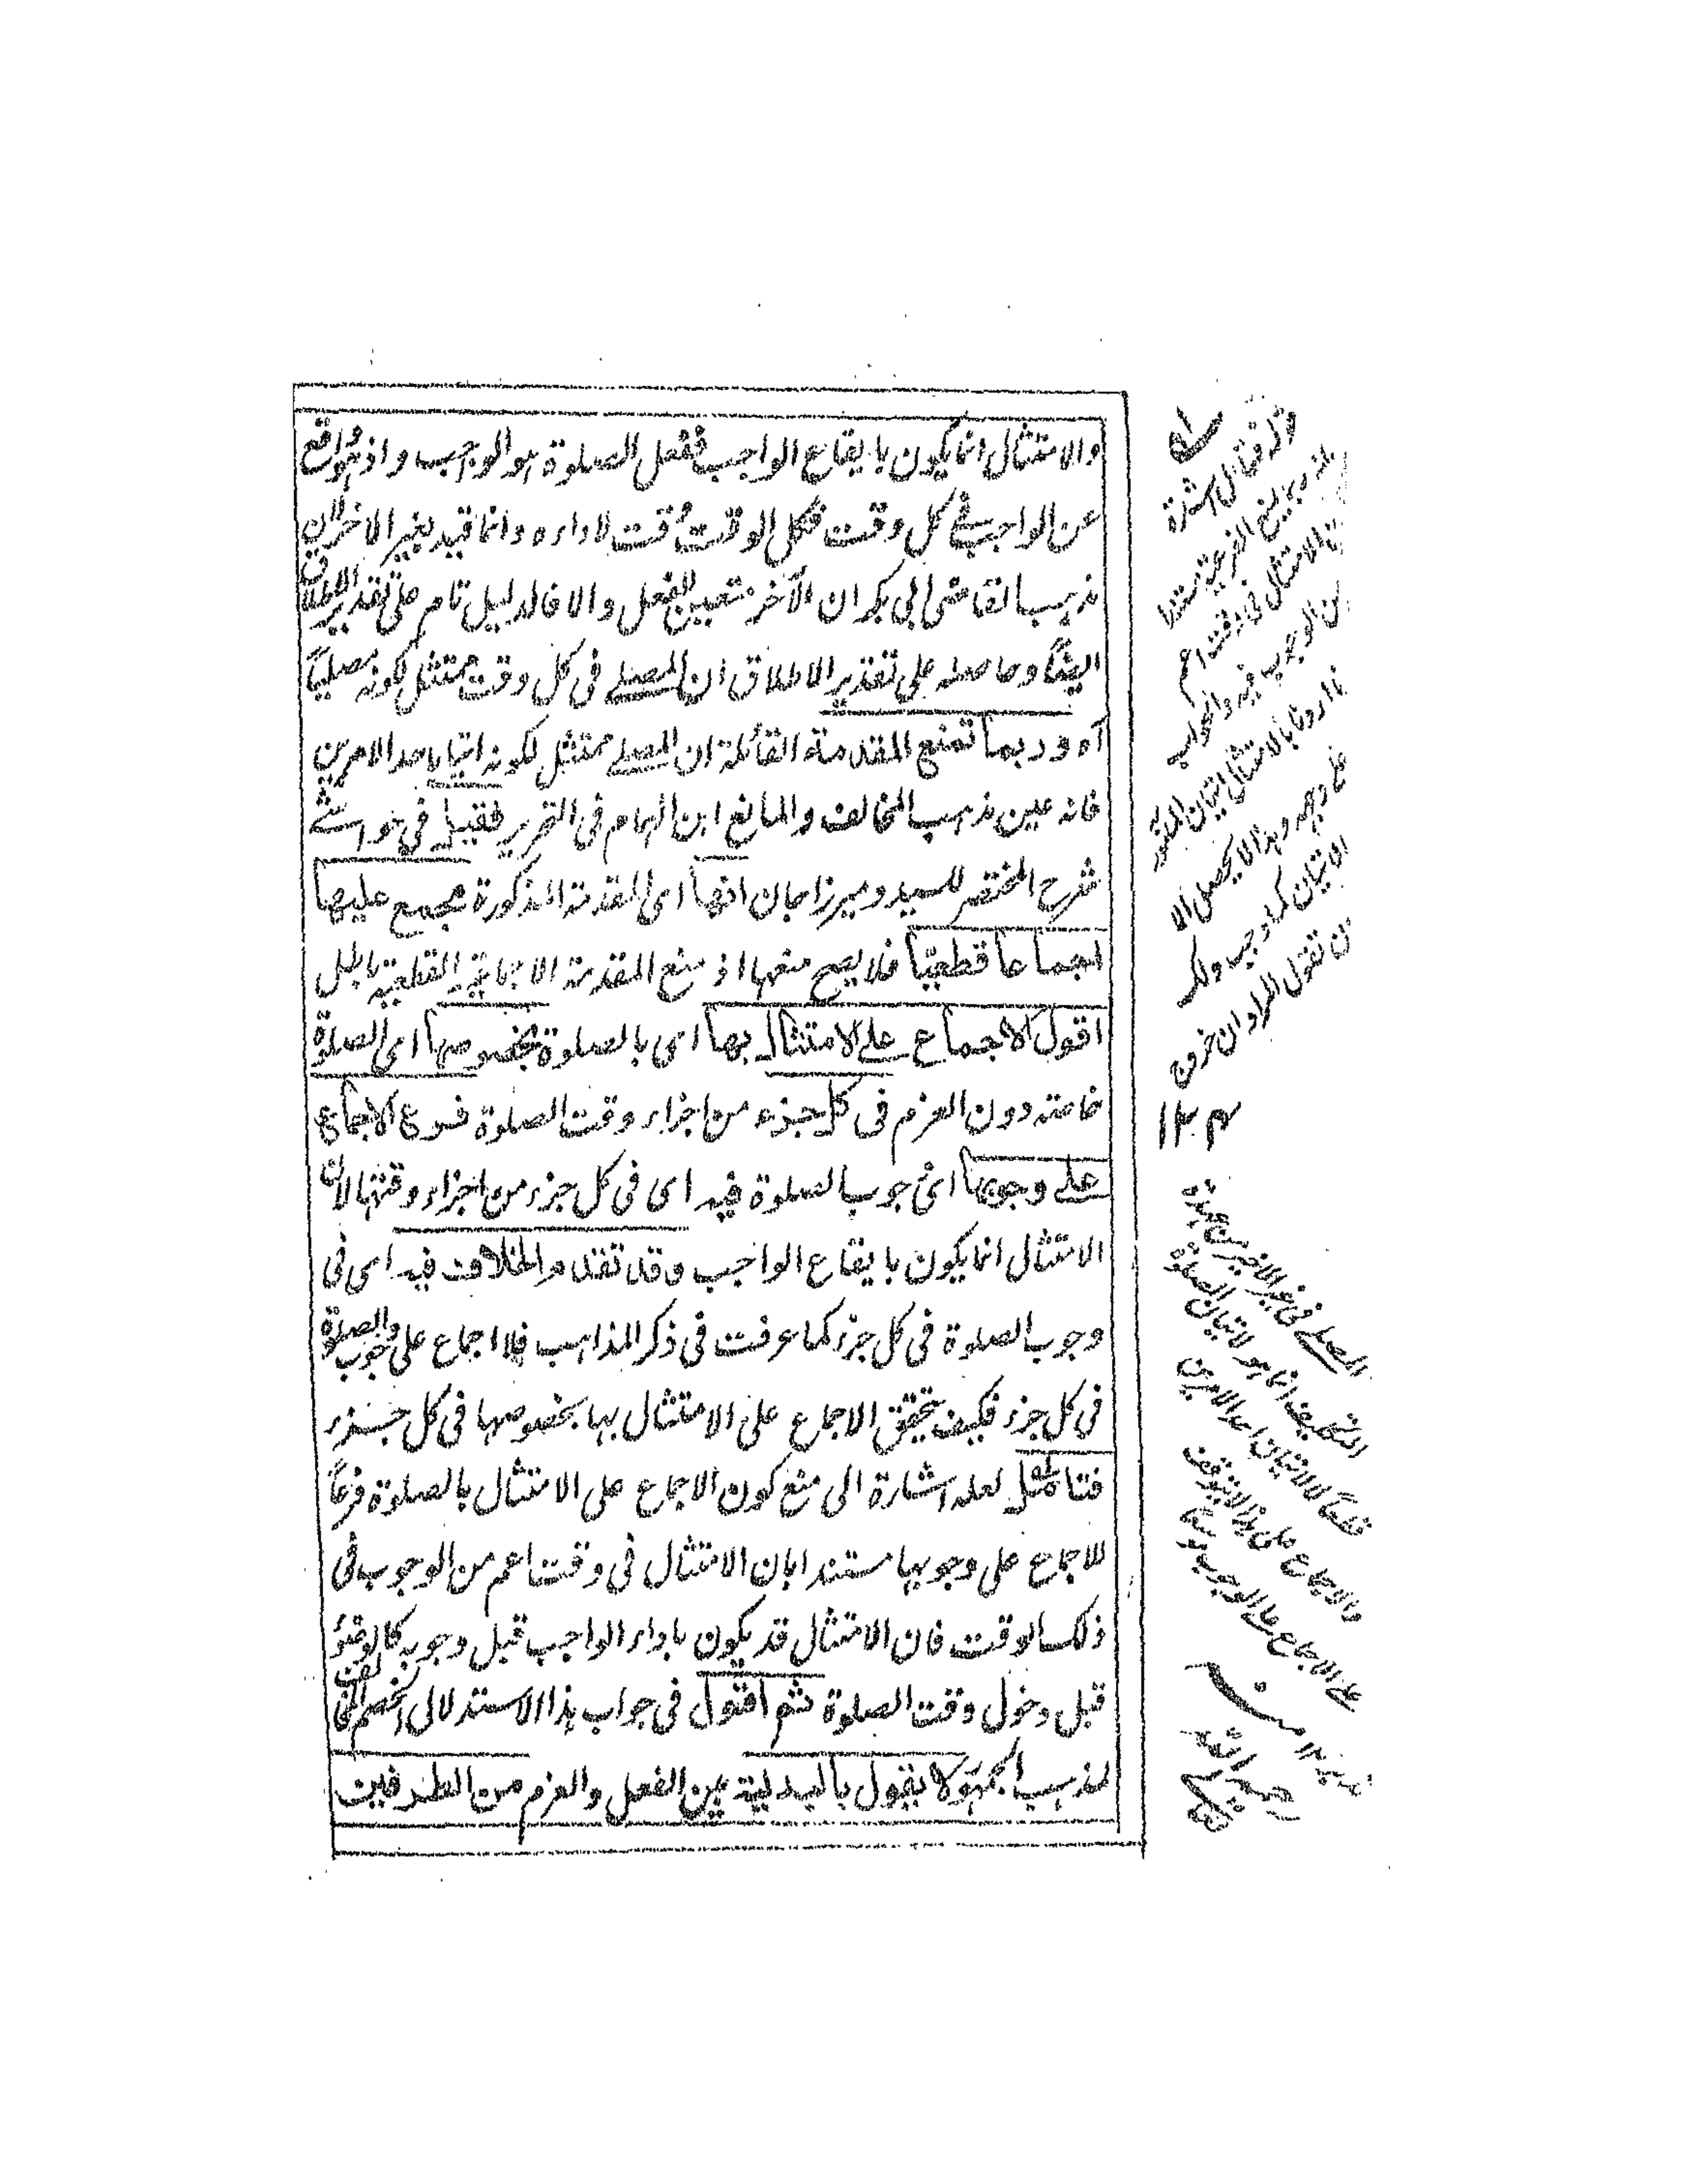 والامتثال انما يكون بايقاع الواجب ففعل الصلوة هو الواجب واذ هو واقع
عن الواجب في كل وقت فكل الوقت وقت لاداءه وانما قيد بغير الاخر لان
مذهب القاضى ابى بكر ان الآخر متعين للفعل والا فالدليل تام على تقدير الاطلاق
ايضًا وحاصله على تقدير الاطلاق ان المصلے فى كل وقت ممتثل لكونه مصليًا
آه وربما تمنع المقدمة القائلة ان المصلے ممتثل لكونه اتيا باحد الامرين
فانه عين مذهب المخالف والمانع ابن الهمام فى التحرير فقيل فى حواشے
شرح المختصر للسيد وميرزا جان انها اى المقدمة المذكورة مجمع عليها
اجماعا قطعيًا فلا يصح منعها اذ منع المقدمة الاجماعية القطعية باطل
اقول الاجماع علے الامتثال بها اى بالصلوة بخصوصها اى الصلوة
خاصته دون العزم فى كل جزء من اجزاء وقت الصلوة فرع الاجماع
علے وجوبها اى وجوب الصلوة فيه اى فى كل جزء من اجزاء وقتها لان
الامتثال انما يكون بايقاع الواجب وقد تقدم الخلاف فيه اى فى
وجوب الصلوة فى كل جزء كما عرفت فى ذكر المذاهب فلا اجماع على وجوب الصلوة
فى كل جزء فكيف يتحقق الاجماع على الامتثال بها بخصوصها فى كل جزء
فتامل لعله اشارة الى منع كون الاجماع على الامتثال بالصلوة فرعًا
للاجماع على وجوبها مستندا بان الامتثال فى وقت اعم من الوجوب فى
ذلك الوقت فان الامتثال قد يكون باداء الواجب قبل وجوبه كالوضوء
قبل دخول وقت الصلوة ثم اقول فى جواب هذا الاستدلال الخصم المخالف
لمذهب الجمهور لا يقول بالبدلية بين الفعل والعزم من الطرفين
قوله فتامل اشارة
الامتثال فى وقت اعم
من الوجوب فيه والجواب
علے وجهه وهذا لا يحصل الا
ن تقول المراد ان خروج
المصلے فى غير الاخير من عهدة
التكليف انما هو لاتيان الصلوة
قطعًا لا لاتيان احد الامرين
والاجماع على هذا لا يتوقف
علے الاجماع علے الوجوب